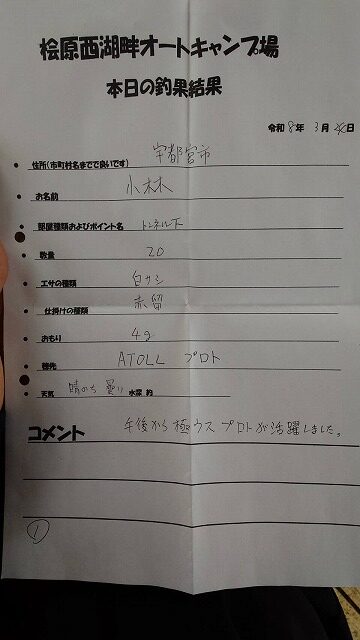 桧原西湖畔オートキャンプ場
本日の釣果結果
令和 8年 3月 日
住所(市町村名までで良いです) 宇都宮市
お名前 小林
部屋種類およびポイント名 トンネル下
数量 20
エサの種類 白サシ
仕掛けの種類 赤留
おもり 4g
穂先 ATOLL プロト
天気 晴のち曇り 水深 約
コメント 午後から極ウスプロトが活躍しました。
①